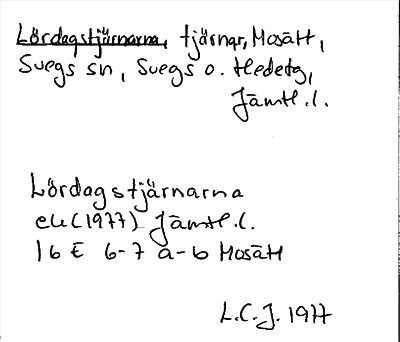 Lördagstjärnarna, tjärnar, Mosätt,
Svegs sn, Svegs o. Hedetg,
Jämtl. l.
Lördagstjärnarna
ek (1977) Jämtl. l.
16 E 6-7 a-b Mosätt
L.C.J. 1977